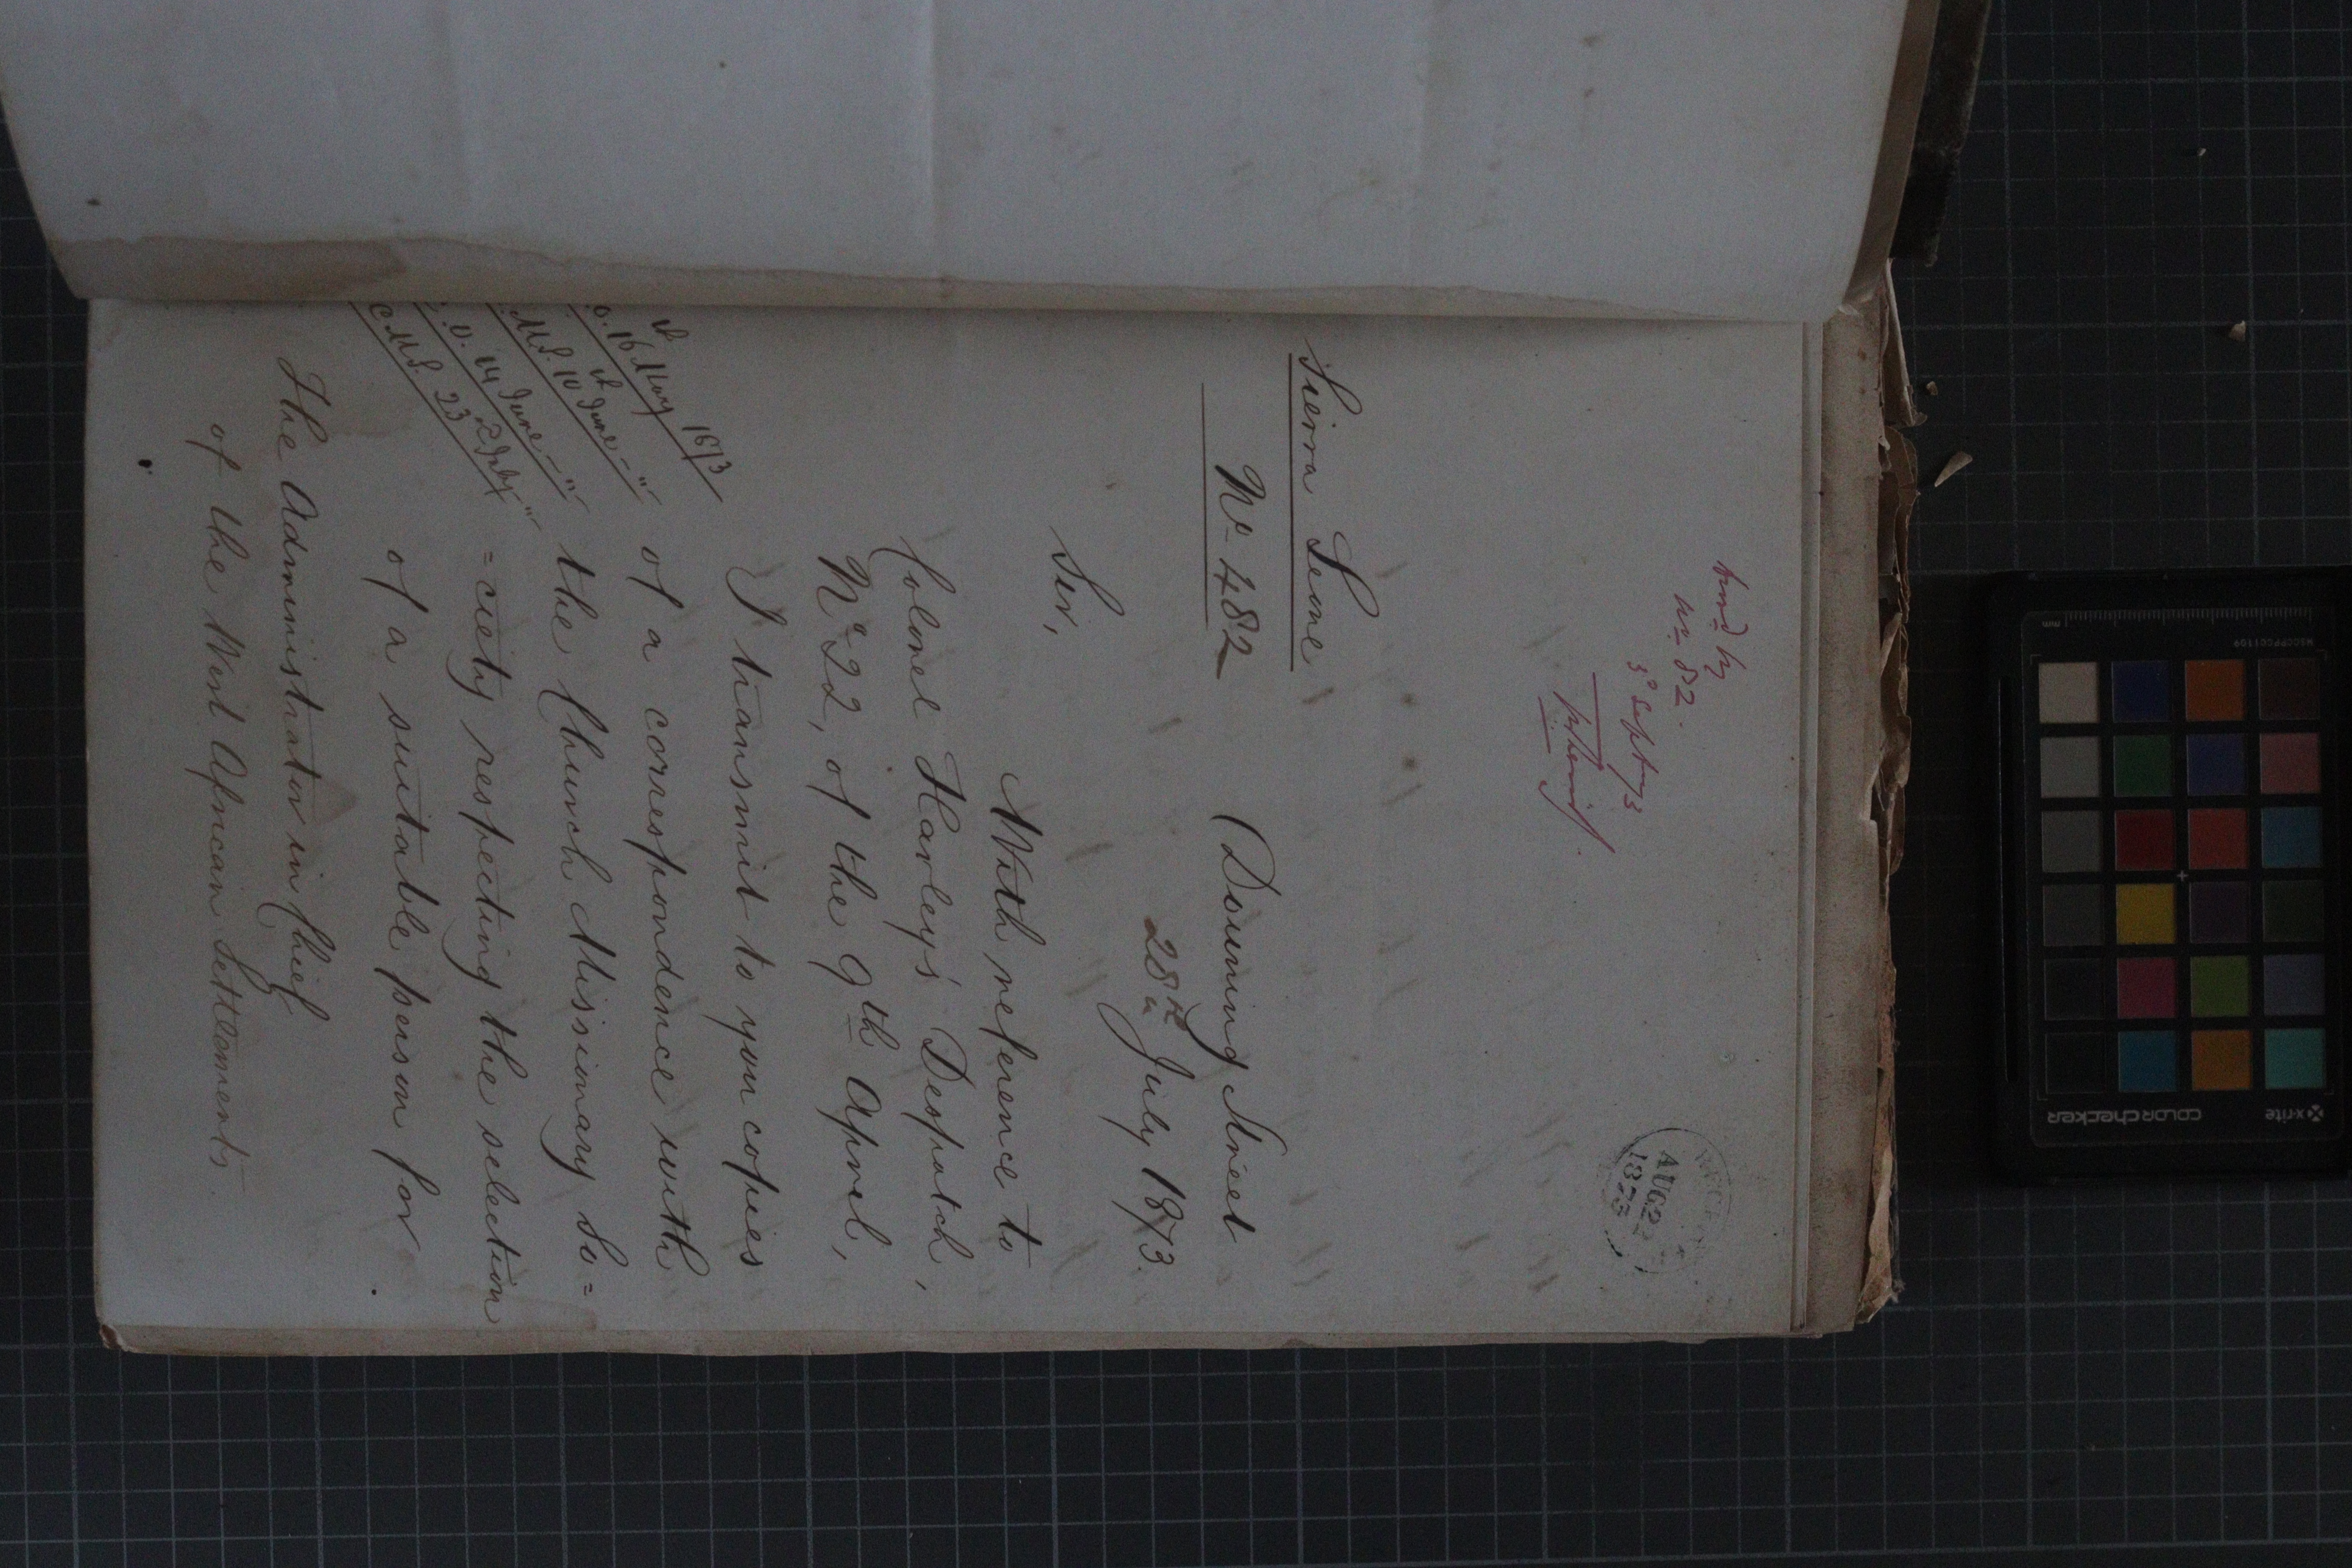 No 82.
3d Sept 73
RECEIVED
AUG 2
1873
Sierra Leone
No 482
Downing Street
28th July 1873.
Sir,
With reference to
Colonel Harley's Despatch,
No 22, of the 9th April,
I transmit to you copies
of a correspondence with
the Church Missionary So=
=ciety respecting the selection
of a suitable person for
16 May 1873
M.S. 10 June - "
O. 14 June - "
C.M.S. 23
The Administrator in Chief
of the West African Settlements
x-rite
colorchecker
mm